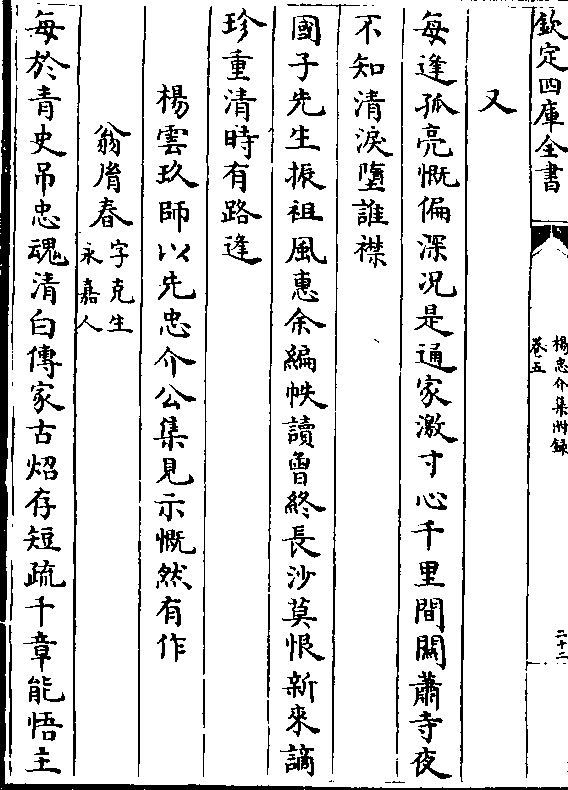 欽定四庫全書
楊忠介集附録
卷五
二十二
又
每逢孤亮慨偏深况是通家激寸心千里間關蕭寺夜
不知清淚墮誰襟
國子先生振祖風惠余編帙讀曾終長沙莫恨新來謫
珍重清時有路逢
楊雲玖師以先忠介公集見示慨然有作
翁胥春字克生
永嘉人
每於青史吊忠魂清白傳家古炤存短疏千章能悟主